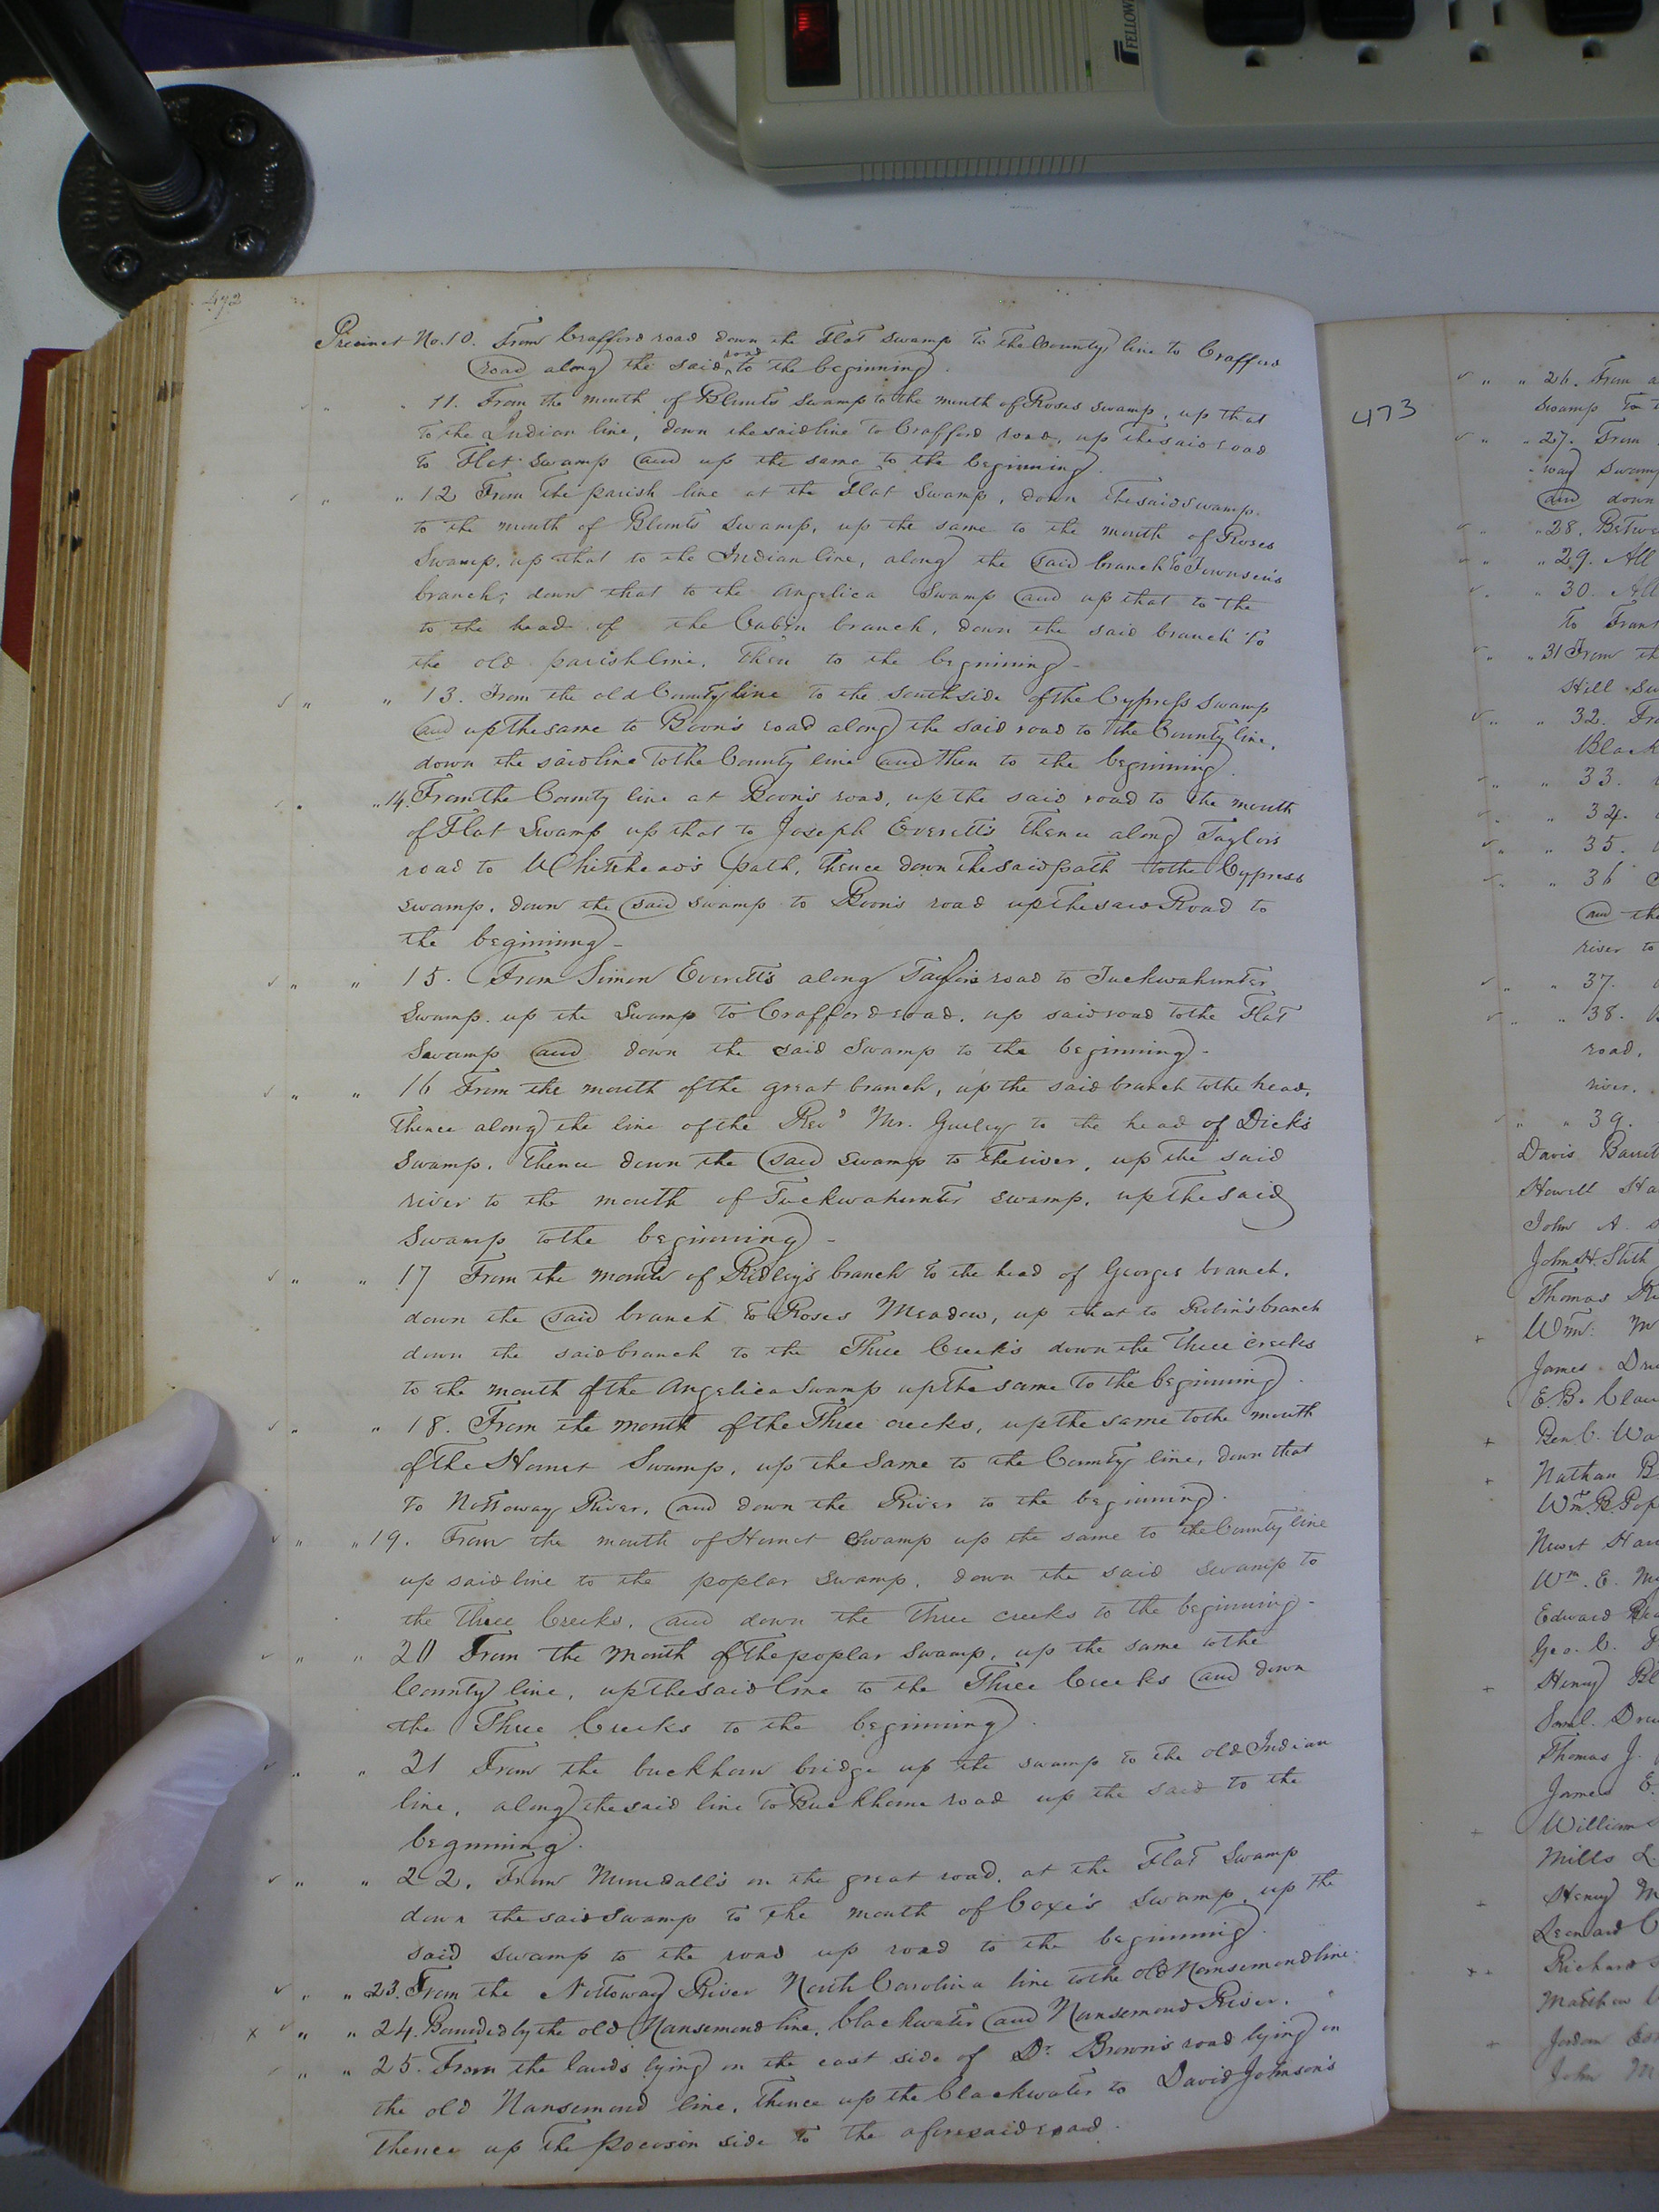 FELLOWE
472
Precinct No. 10. From Crafford road down the Flat Swamp to the County line to Crafford
road along the said road to the beginning.
" " 11. From the mouth of Blunts Swamp to the mouth of Roses Swamp, up that
to the Indian line, down the said line to Crafford road, up the said road
to Flat Swamp and up the same to the beginning.
" " 12 From the parish line at the Flat Swamp, down the said swamp
to the mouth of Blunts Swamp, up the same to the mouth of Roses
Swamp, up that to the Indian line, along the said branch to Townsen's
branch; down that to the Angelica Swamp and up that to the
to the head of the Cabin branch, down the said branch to
the old parish line, then to the beginning-
✓ " " 13. From the old County line to the south side of the Cypress Swamp
and up the same to Boon's road along the said road to the County line,
down the said line to the County line and then to the beginning.
" 14. From the County line at Boon's road, up the said road to the mouth
of Flat Swamp up that to Joseph Everett's thence along Taylors
road to Whitehead's path, thence down the said path to the Cypress
swamp, down the said swamp to Boon's road up the said Road to
the beginning-
✓ " " 15. From Simon Everett's along Taylors road to Tuckwahunter
Swamp. up the Swamp to Crafford road, up said road to the Flat
Swamp and down the said Swamp to the beginning-
✓ " " 16 From the mouth of the great branch, up the said branch to the head,
thence along the line of the Revd Mr. Gurley to the head of Dick's
Swamp, thence down the said swamp to the river, up the said
river to the mouth of Tuckwahunter swamp, up the said
Swamp to the beginning-
✓ " " 17 From the mouth of Ridley's branch to the head of Georges branch,
down the said branch to Roses Meadow, up that to Robin's branch
down the said branch to the Three Creeks down the three creeks
to the mouth of the Angelica Swamp up the same to the beginning.
✓ " " 18. From the mouth of the Three creeks, up the same to the mouth
of the Hornet Swamp, up the Same to the County line, down that
to Nottoway River, and down the River to the beginning.
✓ " " 19. From the mouth of Hornet Swamp up the same to the County line
up said line to the poplar Swamp, down the said swamp to
the Three Creeks, and down the Three creeks to the beginning-
✓ " " 20 From the mouth of the poplar Swamp, up the same to the
County line, up the said line to the Three Creeks and down
the Three Creeks to the beginning.
✓ " " 21 From the buckhorn bridge up the swamp to the old Indian
line, along the said line to Buckhorne road up the said to the
beginning.
✓ " " 22. From on the great road, at the Flat Swamp
down the said Swamp to the mouth of Coxe's Swamp, up the
said swamp to the road up road to the beginning.
✓ " " 23. From the Nottoway River North Carolina line to the old Nansemond line.
x ✓ " " 24. Bounded by the old Nansemond line, blackwater and Nansemond River.
✓ " " 25. From the lands lying on the east side of Dr. Brown's road lying on
the old Nansemond line, thence up the blackwater to David Johnson's
thence up the pocoson side to the aforesaid road.
473
✓ " " 26. From a
Swamp to t
✓ " " 27. From
way Swamp
and down
✓ " " 28. Betwe
" 29. All
✓ " 30. All
to Frank
✓ " " 31 From th
Hill Sw
✓ " " 32. Fro
Black
" " 33.
" 34.
✓ " " 35.
✓ " " 36
and the
river to
✓ " " 37.
✓ " " 38.
road,
river.
" " 39.
Davis Barret
Howell Ha
John A.
John H. Stith
Thomas R
+ Wm: M
James Dre
E. B. Clau
+ Ben C. Wa
+ Nathan B
Wm. B. Pop
Newit Har
Wm. E. M
Edward
Geo. C.
+ Henry Bl
Saml. Drew
Thomas J.
James E.
+ Williams
Mills L.
+ Henry M
Leonard C
Richard
Matthew
+ Jordan
John M